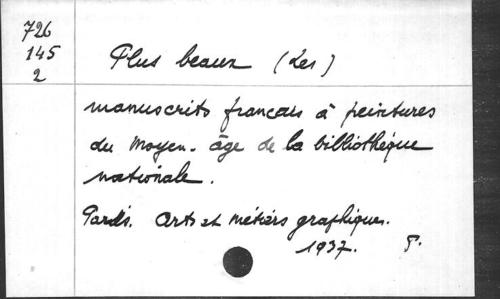 726
145
2
Plus beaux (Les)
manuscrits français à peintures
du Moyen-âge de la bibliothèque
nationale.
Paris. Arts et métiers graphiques.
1937.